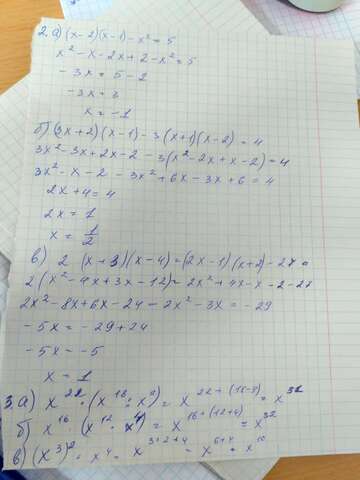 2. а) (x-2)(x-1)-x²=5
x²-x-2x+2-x²=5
-3x=5-2
-3x=3
x=-1
б) (3x+2)(x-1)-3(x+1)(x-2)=4
3x²-3x+2x-2-3(x²-2x+x-2)=4
3x²-x-2-3x²+6x-3x+6=4
2x+4=4
2x=1
x=1/2
в) 2(x+3)(x-4)=(2x-1)(x+2)-27
2(x²-4x+3x-12)=2x²+4x-x-2-27
2x²-8x+6x-24-2x²-3x=-29
-5x=-29+24
-5x=-5
x=1
3. а) x²²·(x¹⁸:x⁹)=x²²⁺⁽¹⁸⁻⁹⁾=x³¹
б) x¹⁶·(x¹²·x⁴)=x¹⁶⁺⁽¹²⁺⁴⁾=x³²
в) (x³)²·x⁴=x³⁺²⁺⁴=x⁶⁺⁴=x¹⁰